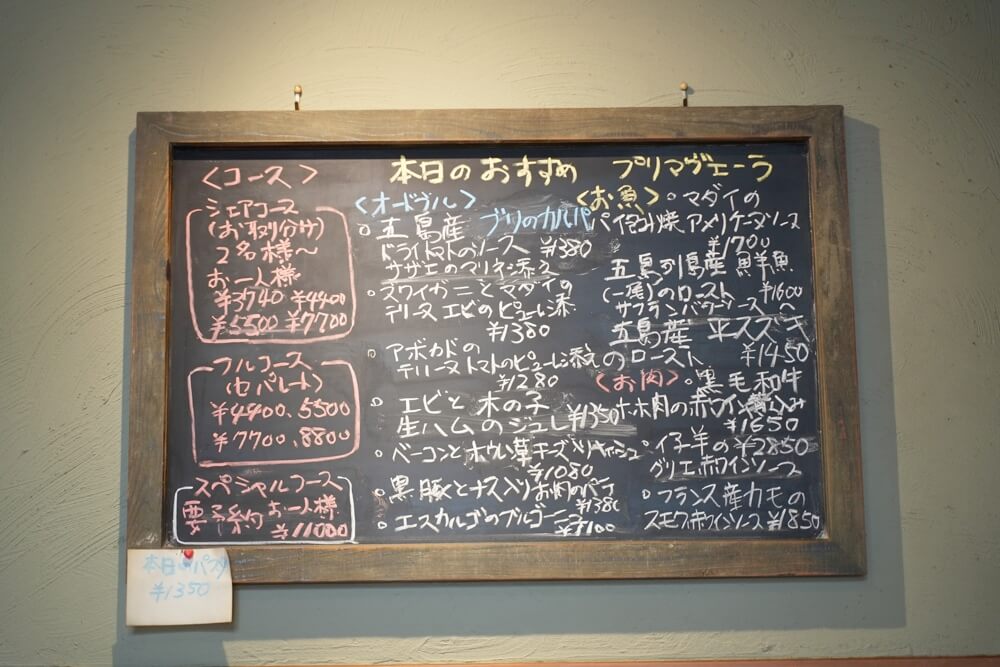 本日のおすすめ プリマヴェーラ
<コース>
シェアコース
(お取り分け)
2名様〜
お一人様
¥3740 ¥4400
¥5500 ¥7700
フルコース
(セパレート)
¥4400、5500
¥7700、8800
スペシャルコース
要予約 お一人様
¥11000
<オードヴル>
五島産 ブリのカルパ
ドライトマトのソース
サザエのマリネ添え
ズワイガニとマダイの
テリーヌ エビのピューレ添
¥1380
アボカドの
テリーヌ トマトのピューレ添え
¥1280
エビと木の子
生ハムのジュレ ¥1350
ベーコンとホウレン草チーズ入りキッシュ
¥1080
黒豚とナス入りお肉のパテ
¥1380
エスカルゴのブルゴーニュ
¥1100
<お魚>
マダイの
パイ包み焼 アメリケーヌソース
¥1700
五島列島産 鮮魚
(一尾)のロースト ¥1600
サフランバターソース
五島産 平スズキ
のロースト ¥1450
<お肉>
黒毛和牛
ホホ肉の赤ワイン煮込み
¥1650
仔羊の ¥2850
グリエ 赤ワインソース
フランス産カモの
スモーク 赤ワインソース ¥1850
本日のパスタ
¥1350